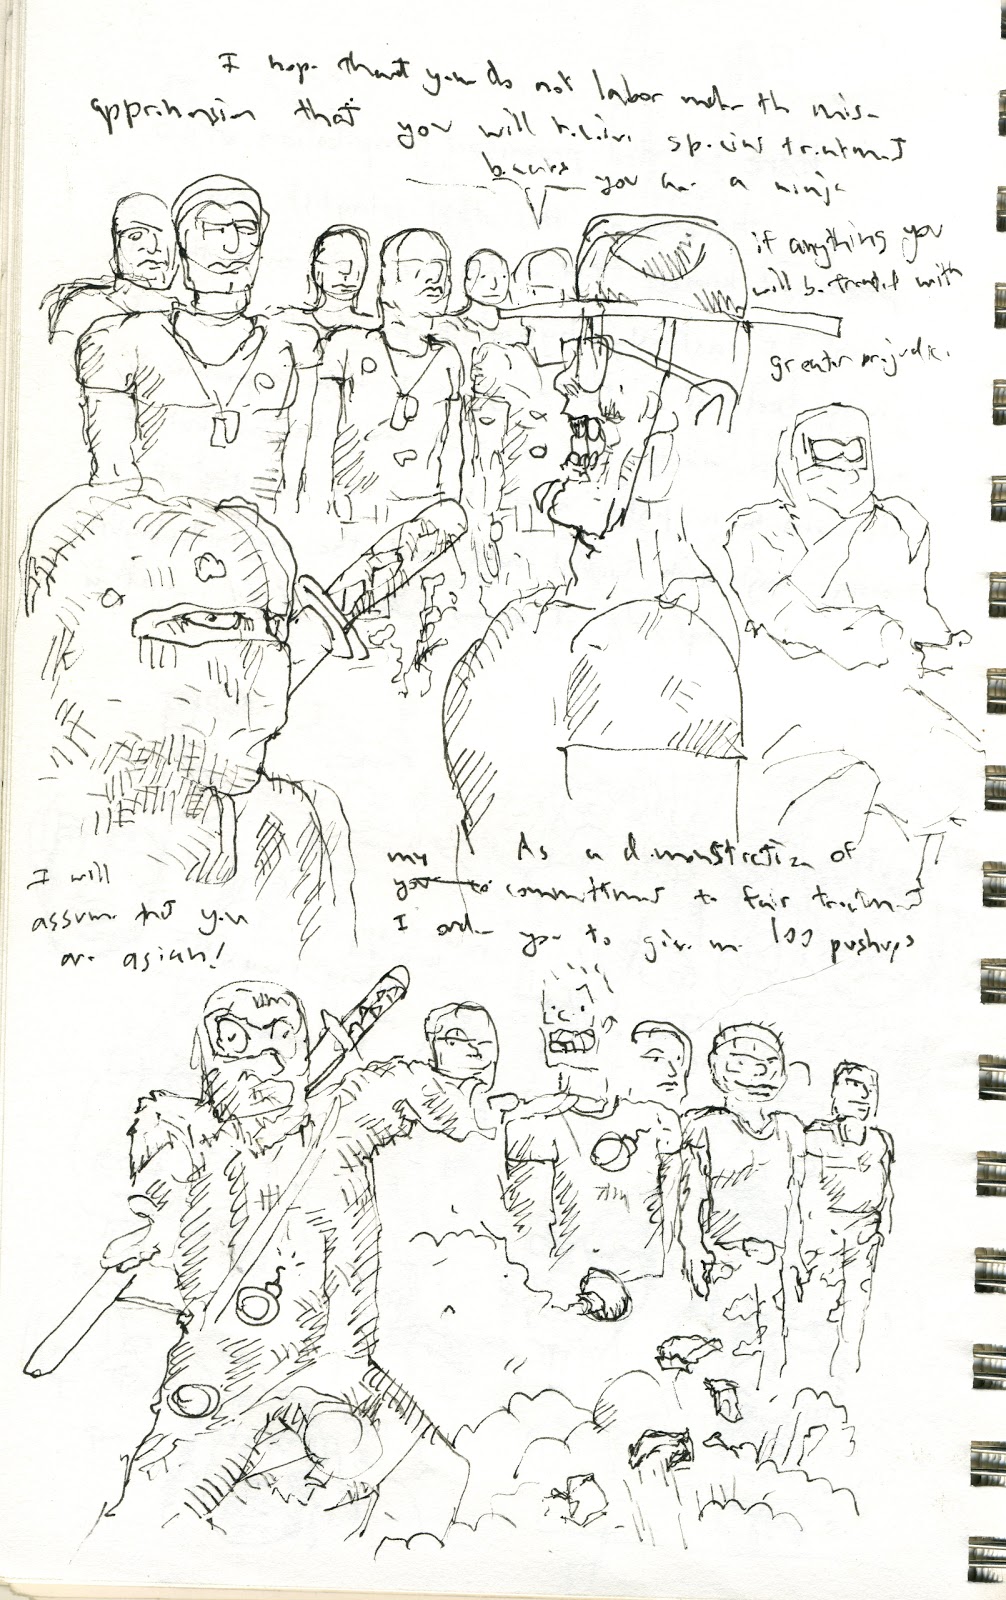 I hope that you do not labor under the mis-
apprehension that you will receive special treatment
because you are a ninja
if anything you
will be treated with
greater prejudice.
I will
assume that you
are asian!
As a demonstration of
my you to committment to fair treatment
I order you to give me 100 pushups